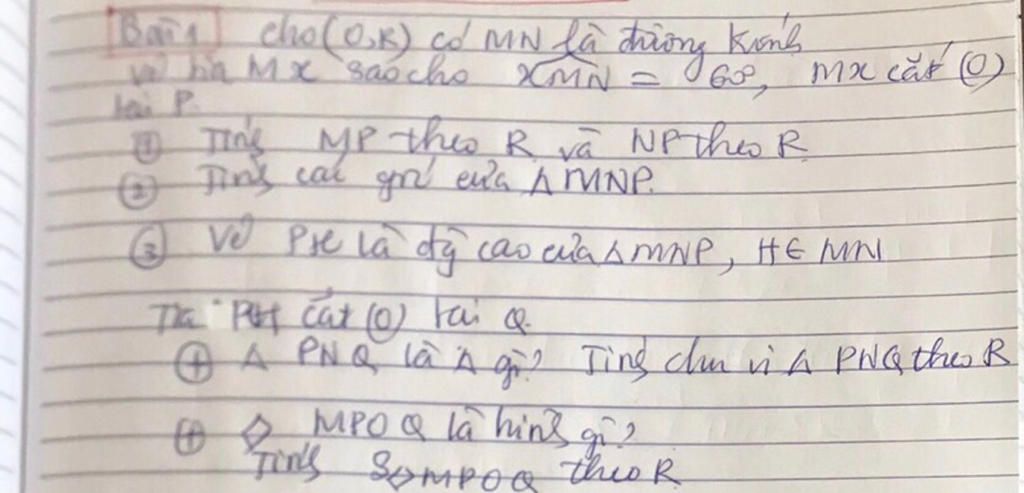 Bài 1 cho (O,R) có MN là đường kính
vẽ tia Mx sao cho xMN = 60°, Mx cắt (O)
tại P.
① Tính MP theo R và NP theo R
② Tính các góc của Δ MNP.
③ Vẽ PH là đg cao của Δ MNP, H ∈ MN
Tia PH cắt (O) tại Q.
⊕ Δ PNQ là Δ gì? Tính chu vi Δ PNQ theo R
⊕ ◇ MPOQ là hình gì?
Tính S◇MPOQ theo R